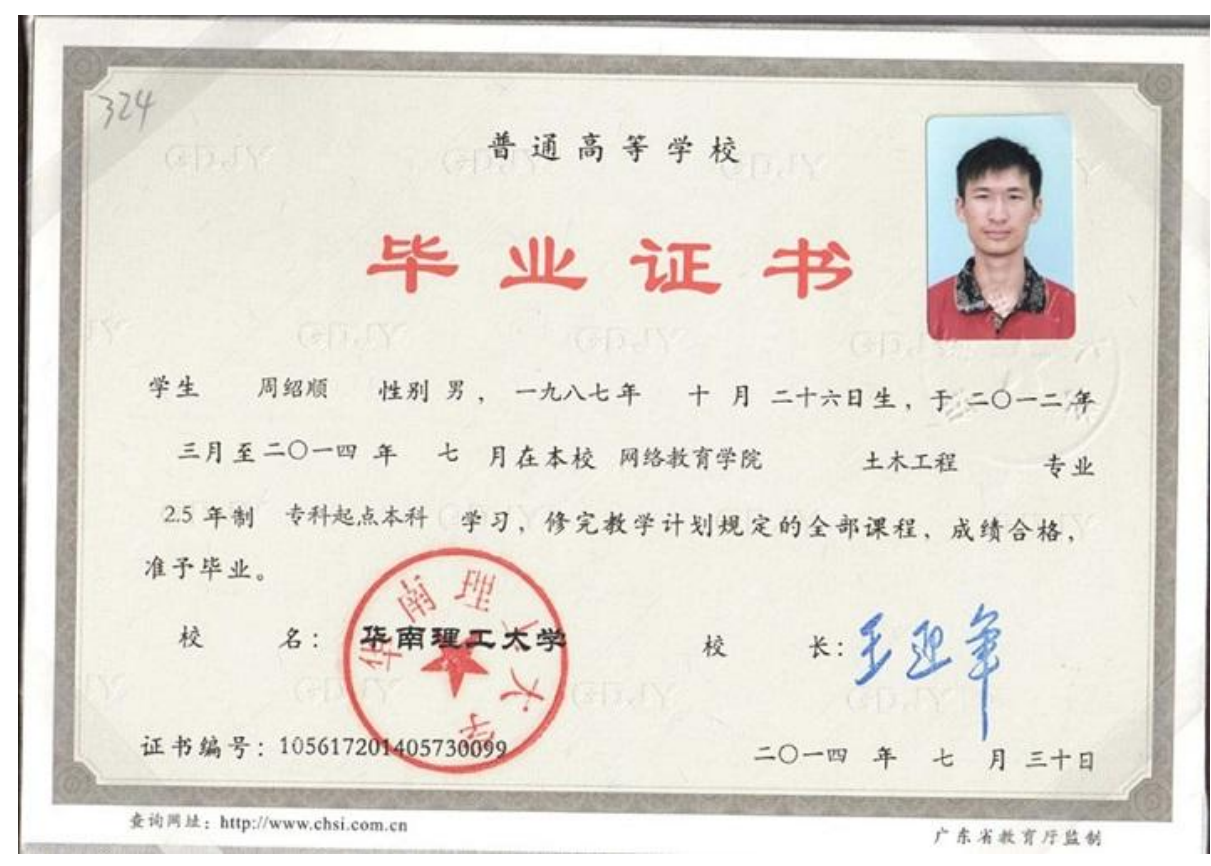 324
普通高等学校
毕业证书
学生 周绍顺 性别 男，一九八七年 十 月 二十六日生，于 二〇一二年
三月至二〇一四 年 七 月在本校 网络教育学院 土木工程 专业
2.5 年制 专科起点本科 学习，修完教学计划规定的全部课程，成绩合格，
准予毕业。
校 名：华南理工大学 校 长：
华南理工大学
证书编号：105617201405730099 二〇一四 年 七 月 三十日
查询网址：http://www.chsi.com.cn 广东省教育厅监制
GDJY